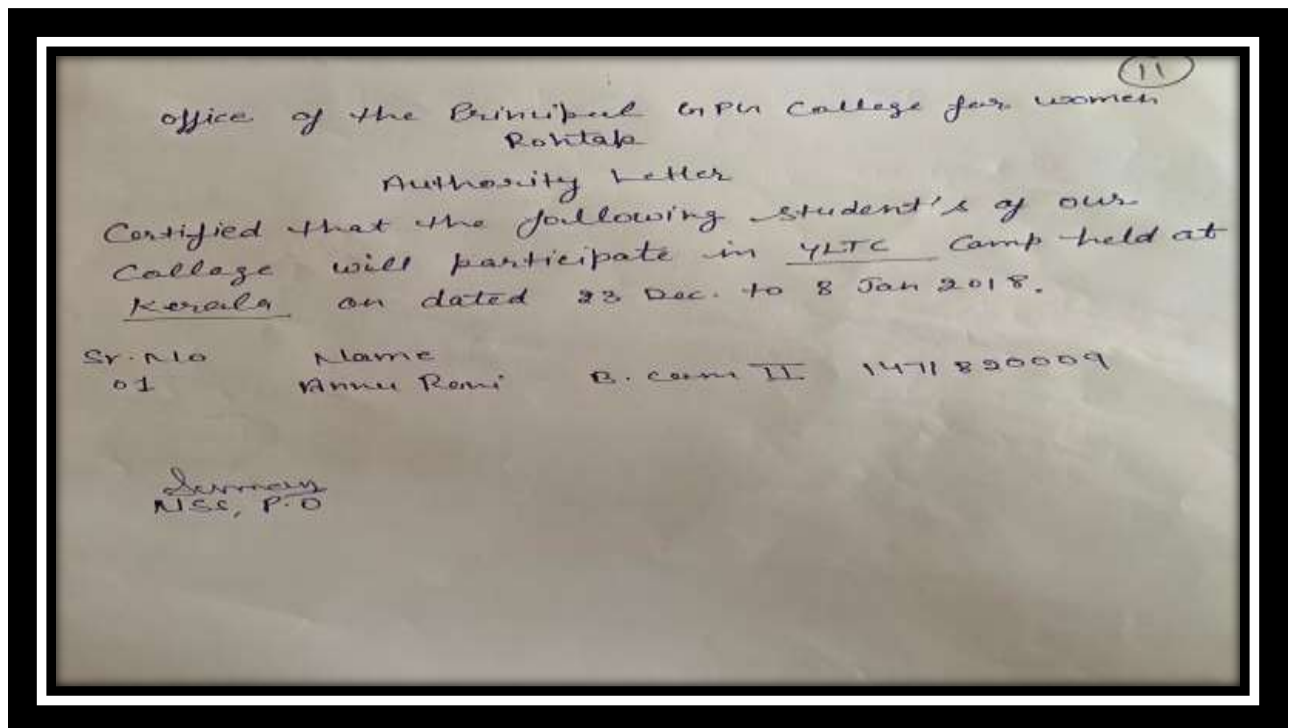 11
office of the Principal GPG College for women
Rohtak
Authority Letter
Certified that the following student's of our
College will participate in YLTC Camp held at
Kerala on dated 23 Dec. to 8 Jan 2018.
Sr. No Name
01 Annu Rani B. com II 1471820009
NSS, P.O